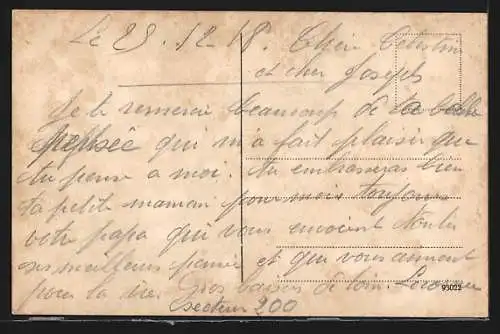 Le 29.12.18. Cher Célestin
et cher Joseph
Je te remercie beaucoup de ta belle
pensée qui m'a fait plaisir que
tu pense a moi. tu embrasseras bien
ta petite maman pour moi toujours
votre papa qui vous envoient
ses meilleurs pensée et que vous aiment
pour la vie. gros baisers de loin.
secteur 200
95022